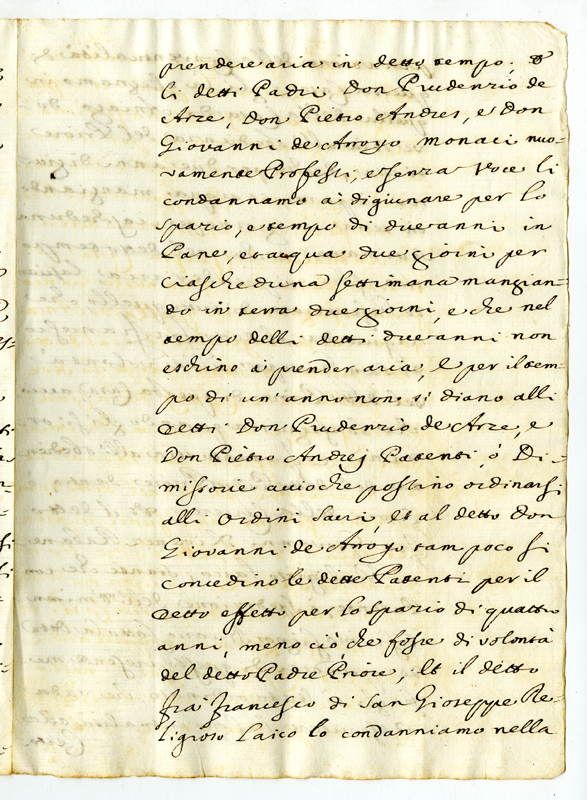 prendere aria in detto tempo; &
li detti Padri Don Prudenzio de
Arze, Don Pietro Andres, e Don
Giovanni de Arroyo monaci nuo-
vamente Professi, e senza Voce li
condannamo à digiunare per lo
spazio, e tempo di due anni in
Pane, et acqua due giorni per
ciascheduna settimana mangian-
do in terra due giorni, e che nel
tempo delli detti due anni non
eschino à prender aria, e per il tem-
po di un' anno non si diano alli
detti Don Prudenzio de Arze, e
Don Pietro Andrej Patenti, ó Di-
missorie acciochè possino ordinarsi
alli Ordini Sacri, et al detto Don
Giovanni de Arroyo tampoco si
concedino le dette Patenti per il
detto effetto per lo spazio di quattro
anni, meno ciò che fosse di volontà
del detto Padre Priore, et il detto
frà Francesco di San Gioseppe Re-
ligioso Laico lo condanniamo nella